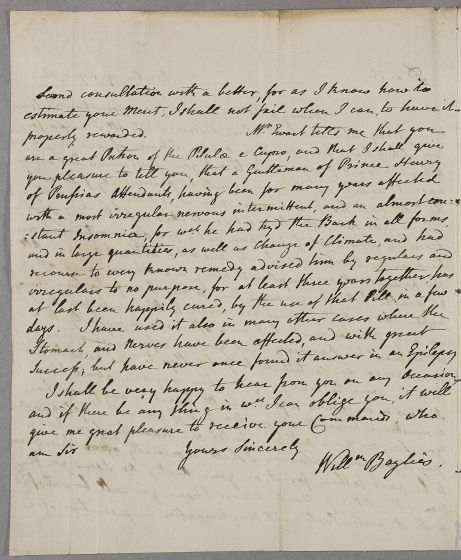 Second consultation with a better, for as I know how to
estimate your Merit, I shall not fail when I can, to have it
properly rewarded. Mr Ewart tells me that you
are a great Patron of the Pilula e Cupro, and that I shall give
you pleasure to tell you, that a Gentleman of Prince Henry
of Prussias Attendants, having been for many years affected
with a most irregular nervous intermittent, and an almost con-
-stant Insomnia, for wch he had tryd the Bark in all forms
and in large quantities, as well as Change of Climate, and had
recourse to every known remedy advised him by regulars and
irregulars to no purpose, for at least three years together has
at last been happily cured, by the use of that Pill, in a few
days. I have used it also in many other cases where the
Stomach, and Nerves have been affected, and with great
Success; but have never once found it answer in an Epilepsy
I shall be very happy to hear from you on any Occasion,
and if there be any thing in wch I can oblige you, it will
give me great pleasure to receive your Commands who
am Sir Yours Sincerely
Willm Baylies.